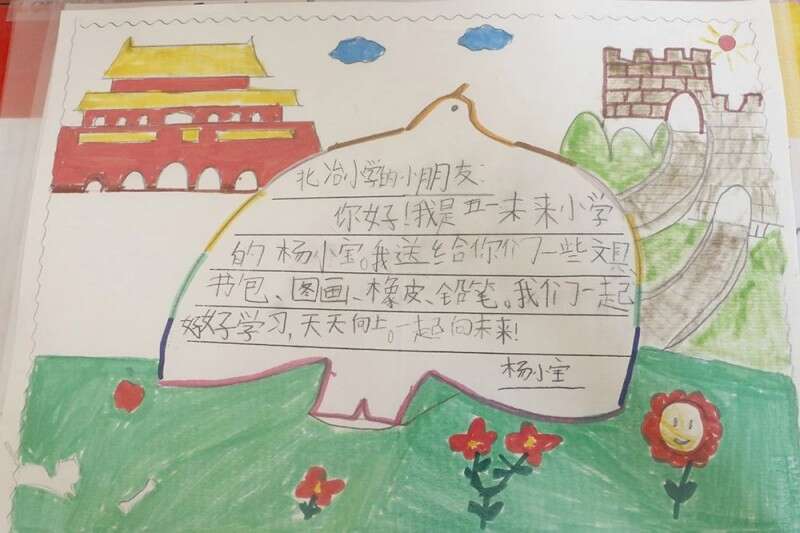 北冶小学的小朋友:
你好!我是五一未来小学
的杨小宝。我送给你们一些文具
书包、图画、橡皮、铅笔。我们一起
好好学习,天天向上。一起向未来!
杨小宝